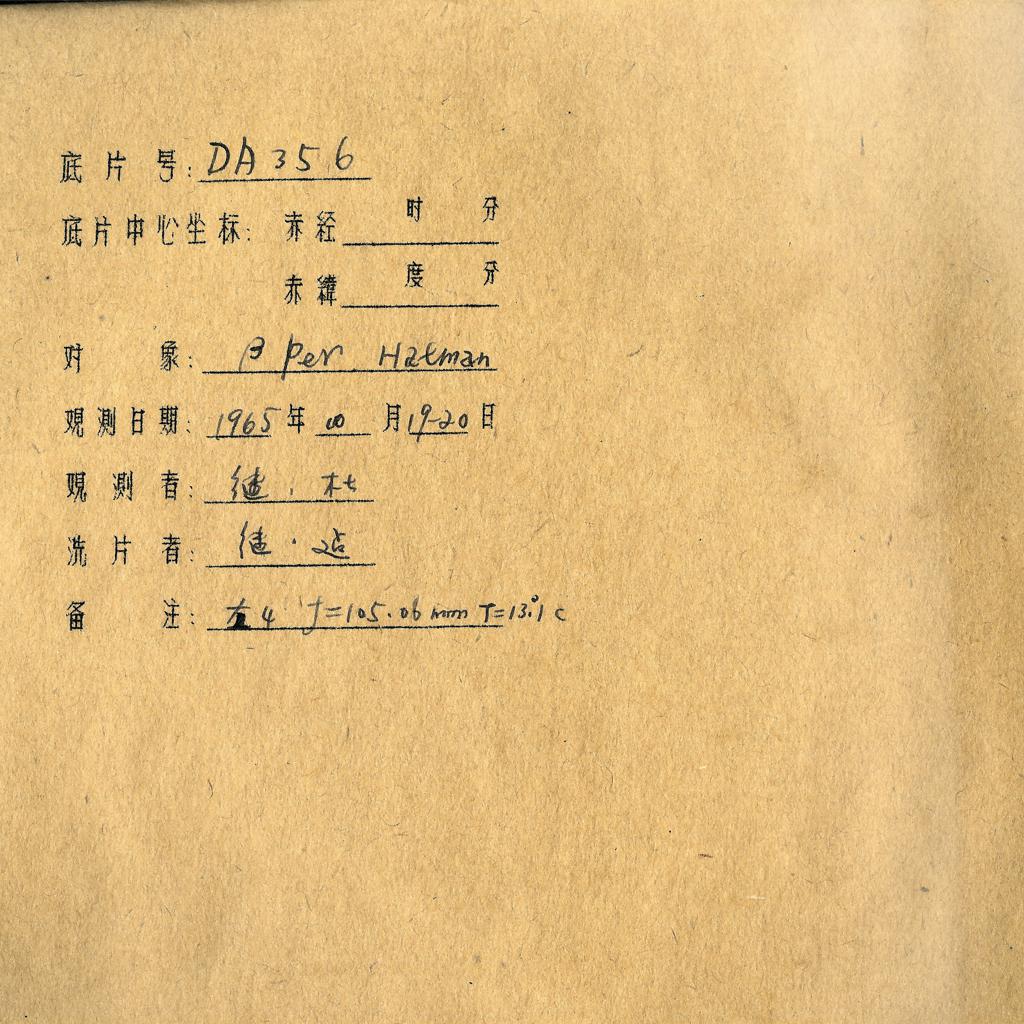 底片号: DA356
底片中心坐标: 赤经 时 分
赤緯 度 分
对象: β Per Hatman
观测日期: 1965年 月19-20日
观测者: 杜
洗片者:
备注: 4 f=105.06mm T=13.°1c